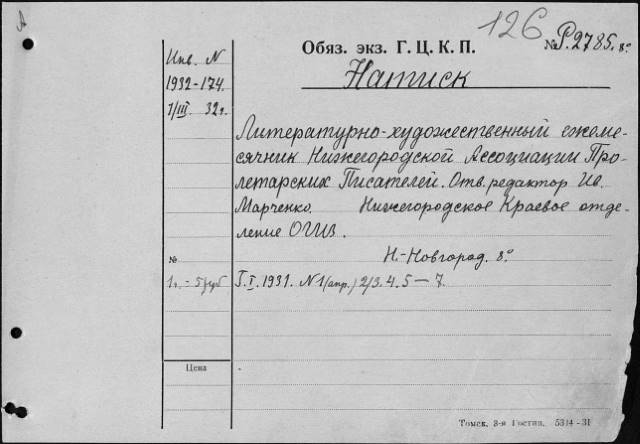 А
126
Обяз. экз. Г. Ц. К. П.
№ Р.2785. 8°
Натиск
Инв. N
1932-174.
1/III. 32г.
Литературно-художественный ежеме-
сячник Нижегородской Ассоциации Про-
летарских Писателей. Отв. редактор Ив.
Марченко. Нижегородское Краевое отде-
ление ОГИЗ.
Н.-Новгород. 8°
№
1г. - 5 руб
Г. I. 1931. N 1 (апр.) 2/3. 4. 5 — 7.
Цена
Томск. 3-я Гостип. 5314-31